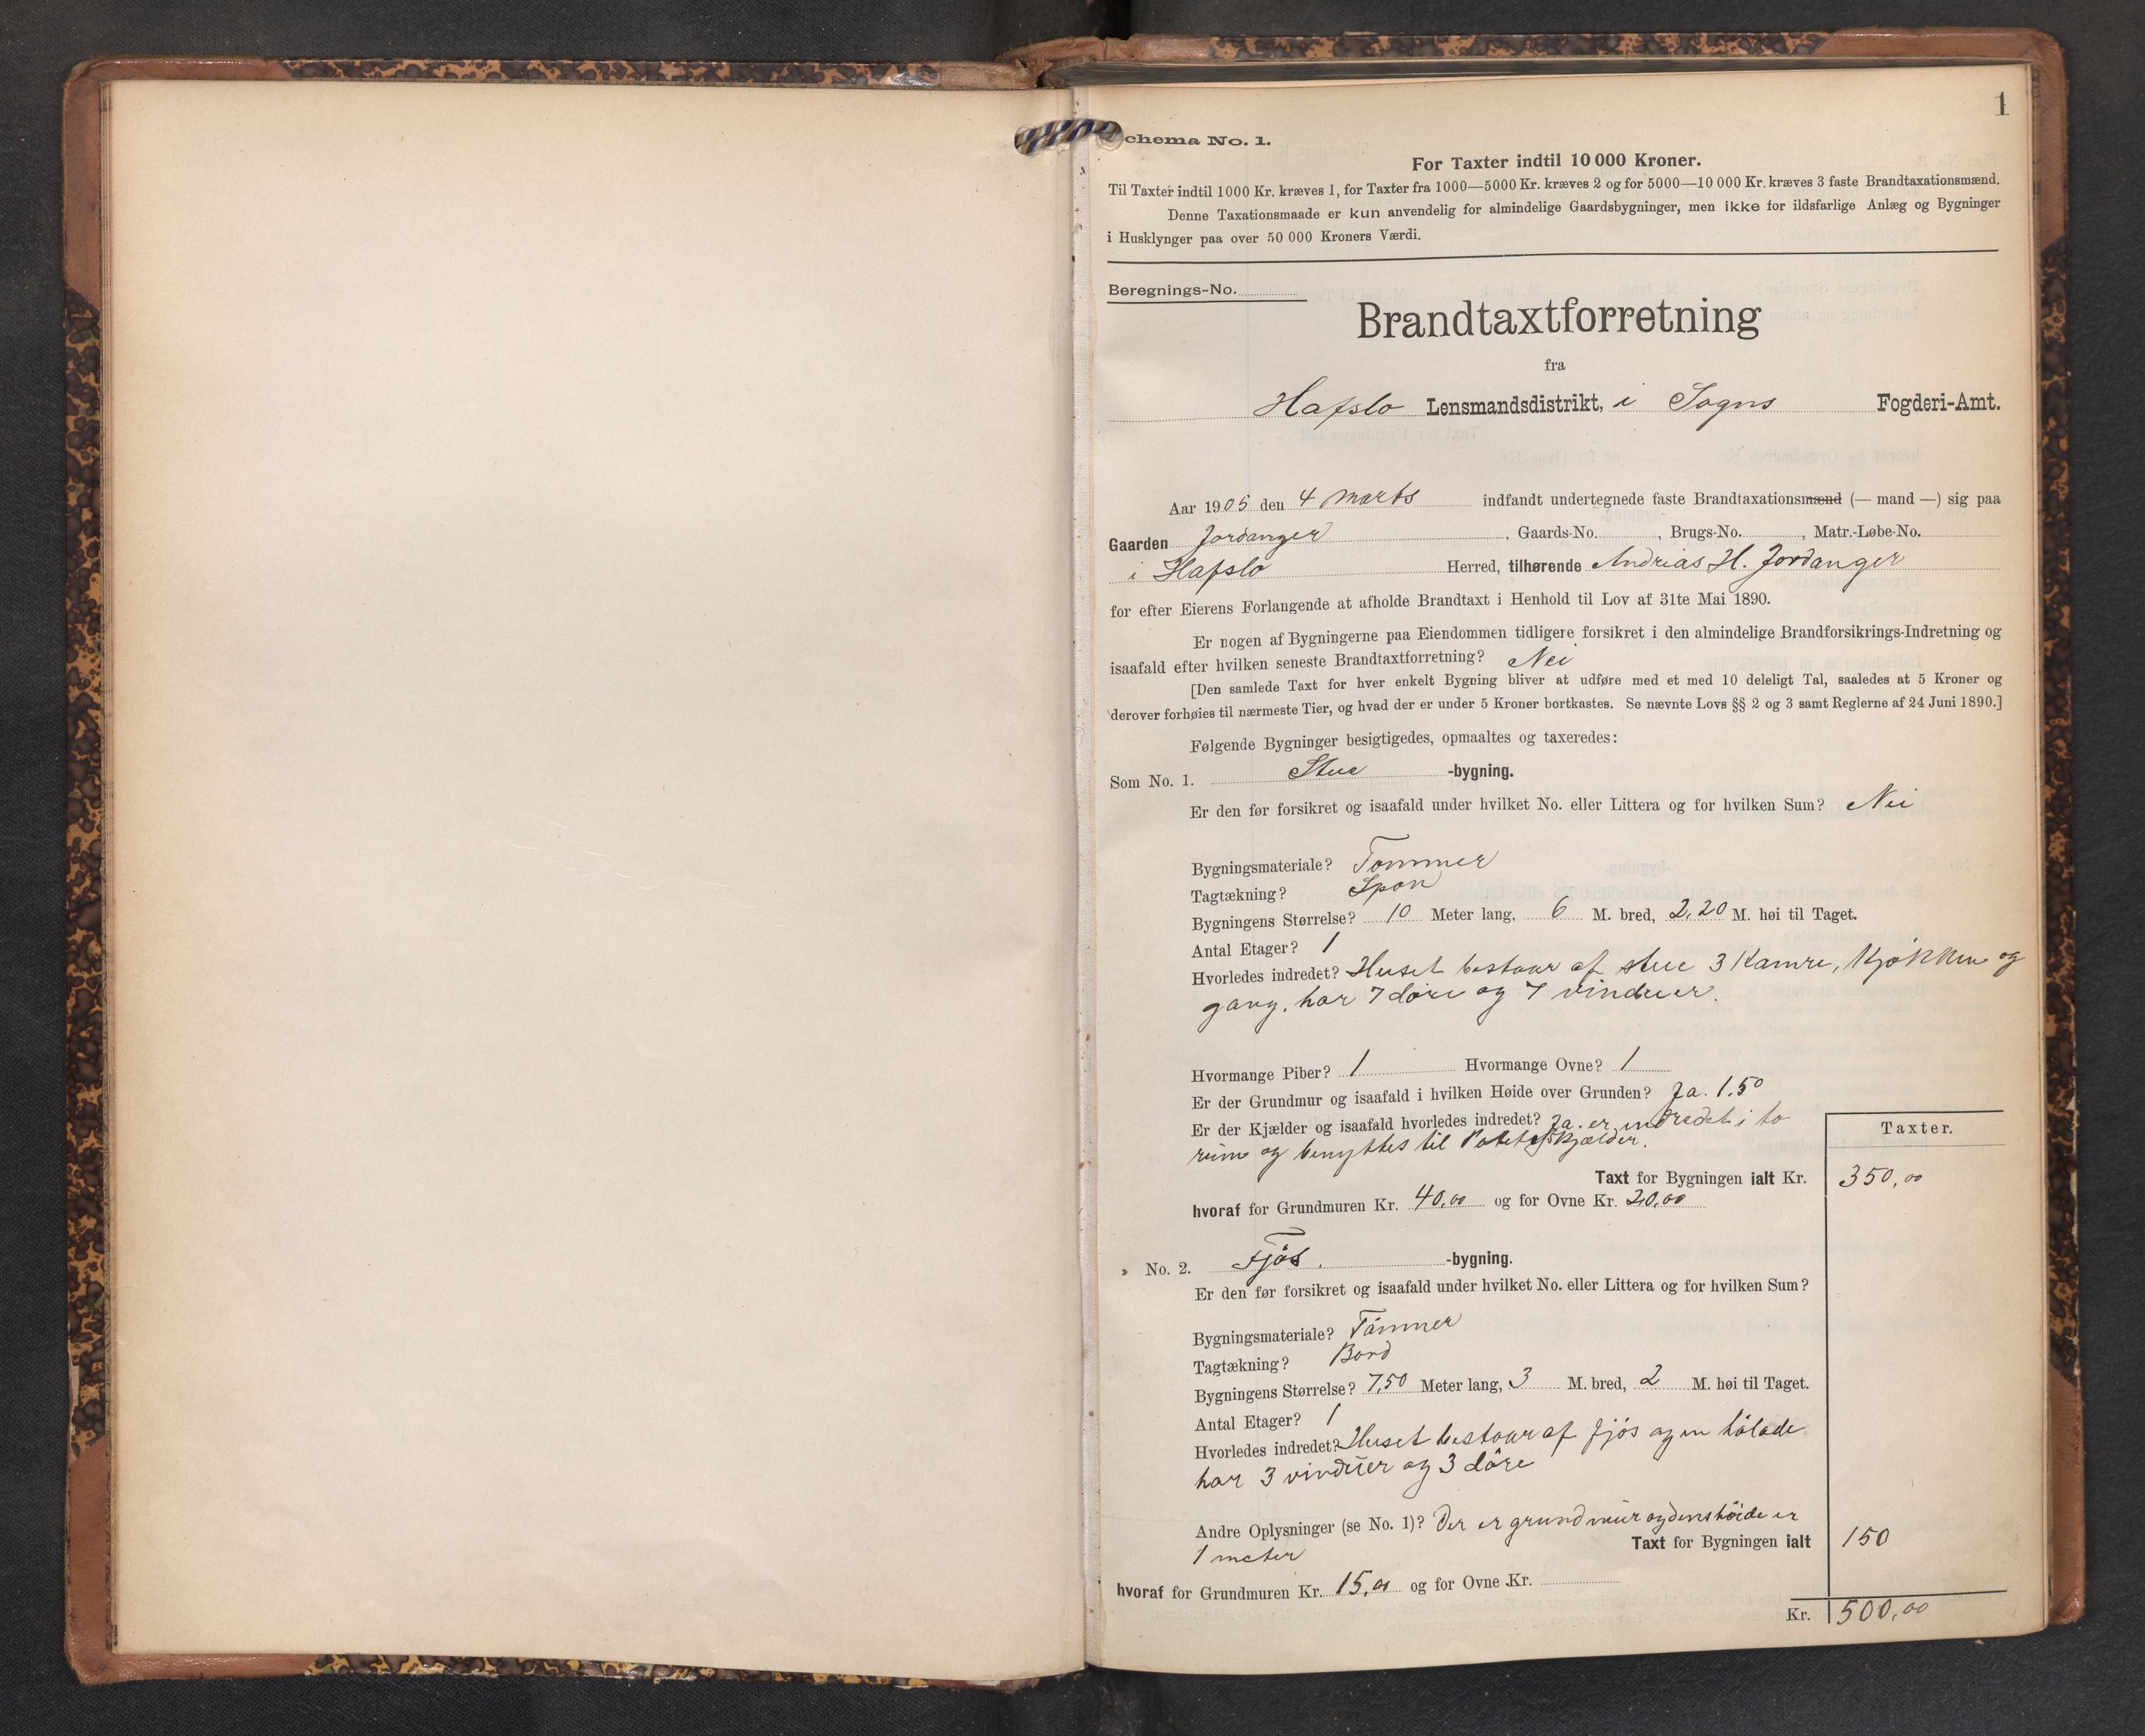 1
chema No. 1.
For Taxter indtil 10 000 Kroner.
Til Taxter indtil 1000 Kr. kræves 1, for Taxter fra 1000—5000 Kr. kræves 2 og for 5000—10 000 Kr. kræves 3 faste Brandtaxationsmænd.
Denne Taxationsmaade er kun anvendelig for almindelige Gaardsbygninger, men ikke for ildsfarlige Anlæg og Bygninger
i Husklynger paa over 50 000 Kroners Værdi.
Beregnings-No.
Brandtaxtforretning
fra
Hafslo Lensmandsdistrikt, i Sogns Fogderi-Amt.
Aar 1905 den 4 marts indfandt undertegnede faste Brandtaxationsmænd (— mand —) sig paa
Gaarden Jordanger, Gaards-No. , Brugs-No. , Matr.-Løbe-No.
i Hafslo Herred, tilhørende Andrias H. Jordanger
for efter Eierens Forlangende at afholde Brandtaxt i Henhold til Lov af 31te Mai 1890.
Er nogen af Bygningerne paa Eiendommen tidligere forsikret i den almindelige Brandforsikrings-Indretning og
isaafald efter hvilken seneste Brandtaxtforretning? Nei
[Den samlede Taxt for hver enkelt Bygning bliver at udføre med et med 10 deleligt Tal, saaledes at 5 Kroner og
derover forhøies til nærmeste Tier, og hvad der er under 5 Kroner bortkastes. Se nævnte Lovs §§ 2 og 3 samt Reglerne af 24 Juni 1890.]
Følgende Bygninger besigtigedes, opmaaltes og taxeredes:
Som No. 1. Stue -bygning.
Er den før forsikret og isaafald under hvilket No. eller Littera og for hvilken Sum? Nei
Bygningsmateriale? Tømmer
Tagtækning? Spon
Bygningens Størrelse? 10 Meter lang, 6 M. bred, 2,20 M. høi til Taget.
Antal Etager? 1
Hvorledes indredet? Huset bestaar af stue 3 Kamre, Kjøkken og
gang, har 7 døre og 7 vinduer.
Hvormange Piber? 1 Hvormange Ovne? 1
Er der Grundmur og isaafald i hvilken Høide over Grunden? Ja. 1,50
Er der Kjælder og isaafald hvorledes indredet? Ja. er indredet i to
rum og benyttes til Poteteskjælder.
Taxter.
Taxt for Bygningen ialt Kr. 350,00
hvoraf for Grundmuren Kr. 40,00 og for Ovne Kr. 20,00
» No. 2. Fjøs. -bygning.
Er den før forsikret og isaafald under hvilket No. eller Littera og for hvilken Sum?
Bygningsmateriale? Tömmer
Tagtækning? Bord
Bygningens Størrelse? 7,50 Meter lang, 3 M. bred, 2 M. høi til Taget.
Antal Etager? 1
Hvorledes indredet? Huset bestaar af fjös og en hölade
har 3 vinduer og 3 döre
Andre Oplysninger (se No. 1)? Der er grundmur og dens höide er
1 meter Taxt for Bygningen ialt 150
hvoraf for Grundmuren Kr. 15,00 og for Ovne Kr.
Kr. 500,00